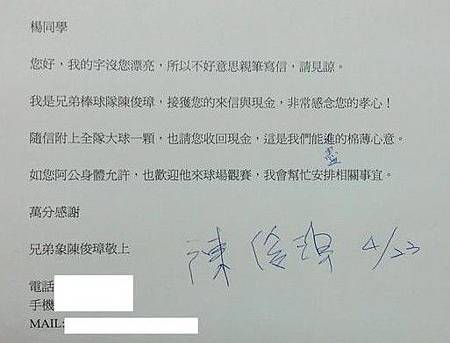 楊同學
您好，我的字沒您漂亮，所以不好意思親筆寫信，請見諒。
我是兄弟棒球隊陳俊瑋，接獲您的來信與現金，非常感念您的孝心！
隨信附上全隊大球一顆，也請您收回現金，這是我們能進的棉薄心意。
盡
如您阿公身體允許，也歡迎他來球場觀賽，我會幫忙安排相關事宜。
萬分感謝
兄弟象陳俊瑋敬上
陳俊瑋 4/23
電話
手機
MAIL: